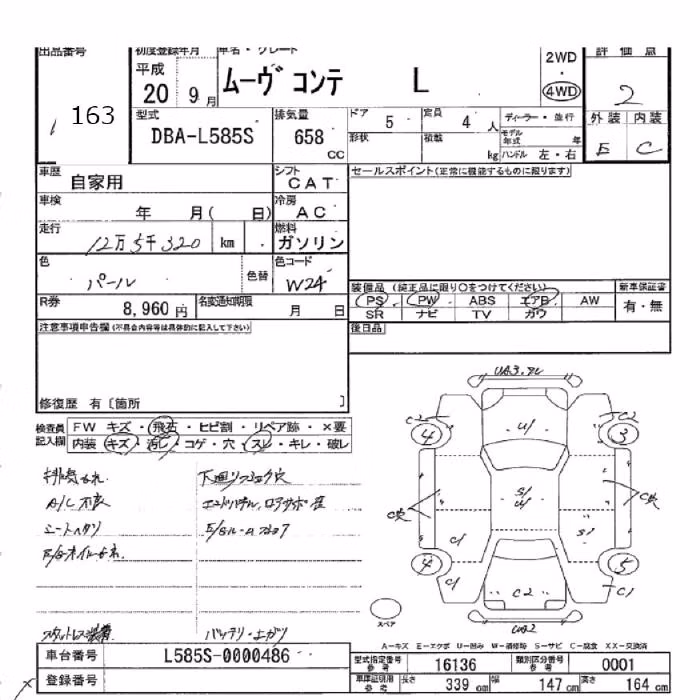 出品番号 初度登録年月 車名・グレード 2WD 評価点
163 平成 20 9月 ムーヴ コンテ L ・ 4WD 2
型式 排気量 ドア 5 定員 4人 ディーラー・並行 外装 内装
DBA-L585S 658 cc 形状 積載 kg モデル年式 年 ハンドル 左・右 E C
車歴 自家用 シフト CAT セールスポイント(正常に機能するものに限ります)
車検 年 月( 日) 冷房 AC
走行 12万5千320 km 燃料 ガソリン
色 パール 色替 色コード W24
装備品 (純正品に限り○をつけてください) 新車保証書
R券 8,960円 名変通知期限 月 日
PS PW ABS エアB AW 有・無
SR ナビ TV カワ
注意事項申告欄(不具合内容等は具体的に記入して下さい) 後日品
修復歴 有〔箇所 〕
検査員記入欄 FW キズ・飛石・ヒビ割・リペア跡・×要
内装 キズ・汚し・コゲ・穴・スレ・キレ・破レ
排気もれ
A/C不良
シートヘタリ
スタットレス装着
UA3
C2 U/ C2
4 3
C穴 S/ C穴
C/ S/
4 5
C/ C2 C/
スペア
A=キズ E=エクボ U=凹み W=補修跡 S=サビ C=腐食 XX=交換済
車台番号 L585S-0000486
型式指定番号 参考 16136 類別区分番号 参考 0001
登録番号
車庫証明用 参考 長さ 339cm 幅 147cm 高さ 164cm